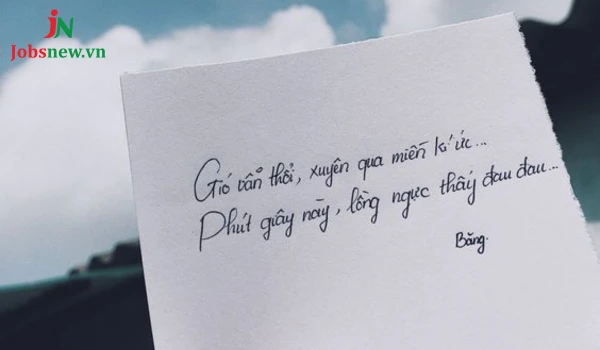 JN
Jobsnew.vn
Gió vẫn thổi, xuyên qua miền kí ức...
Phút giây này, lồng ngực thấy đau đau...
Băng.